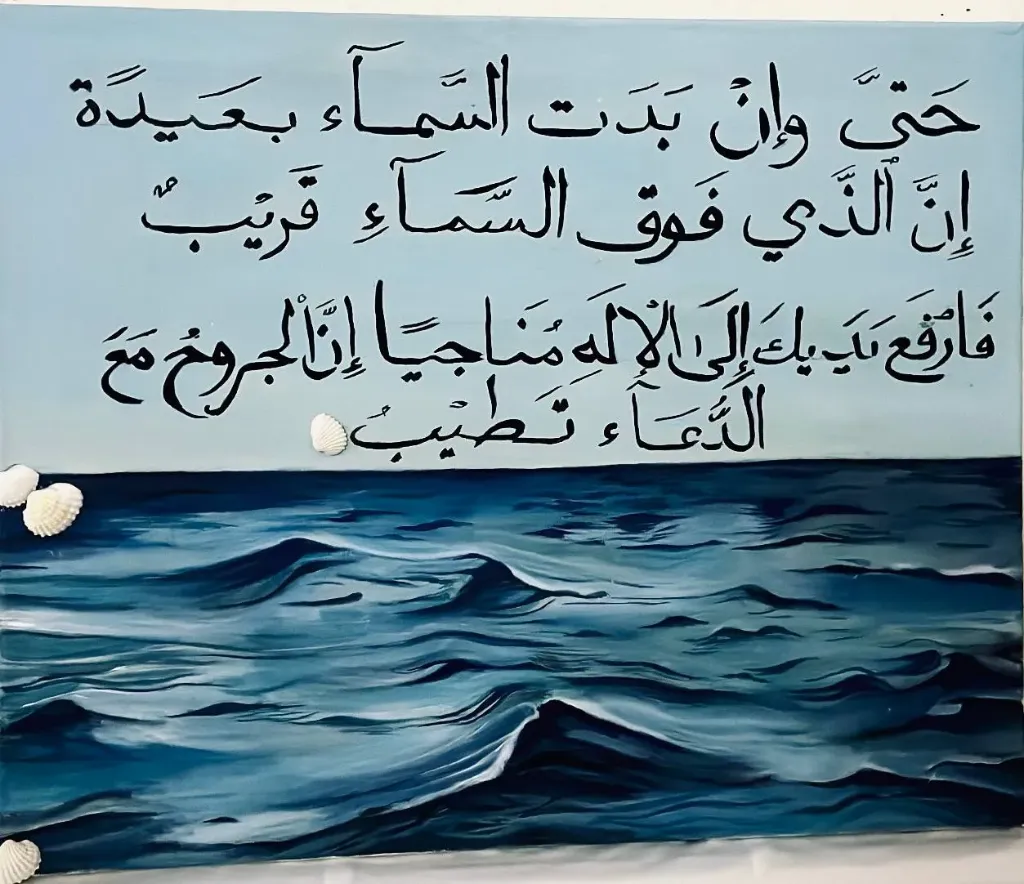 حَتَّى وَإِنْ بَدَت السَّمَآء بـعَـيـدًة
إِنَّ الَّذَي فَوق السَّمَآءِ قَرِيْبٌ
فَارْفَع يَدَيكَ إِلَى الْإِلَهِ مُنَاجيًـا إِنَّ الْجروحُ مَعَ
الدُّعَآء تَـطـيْـبُ